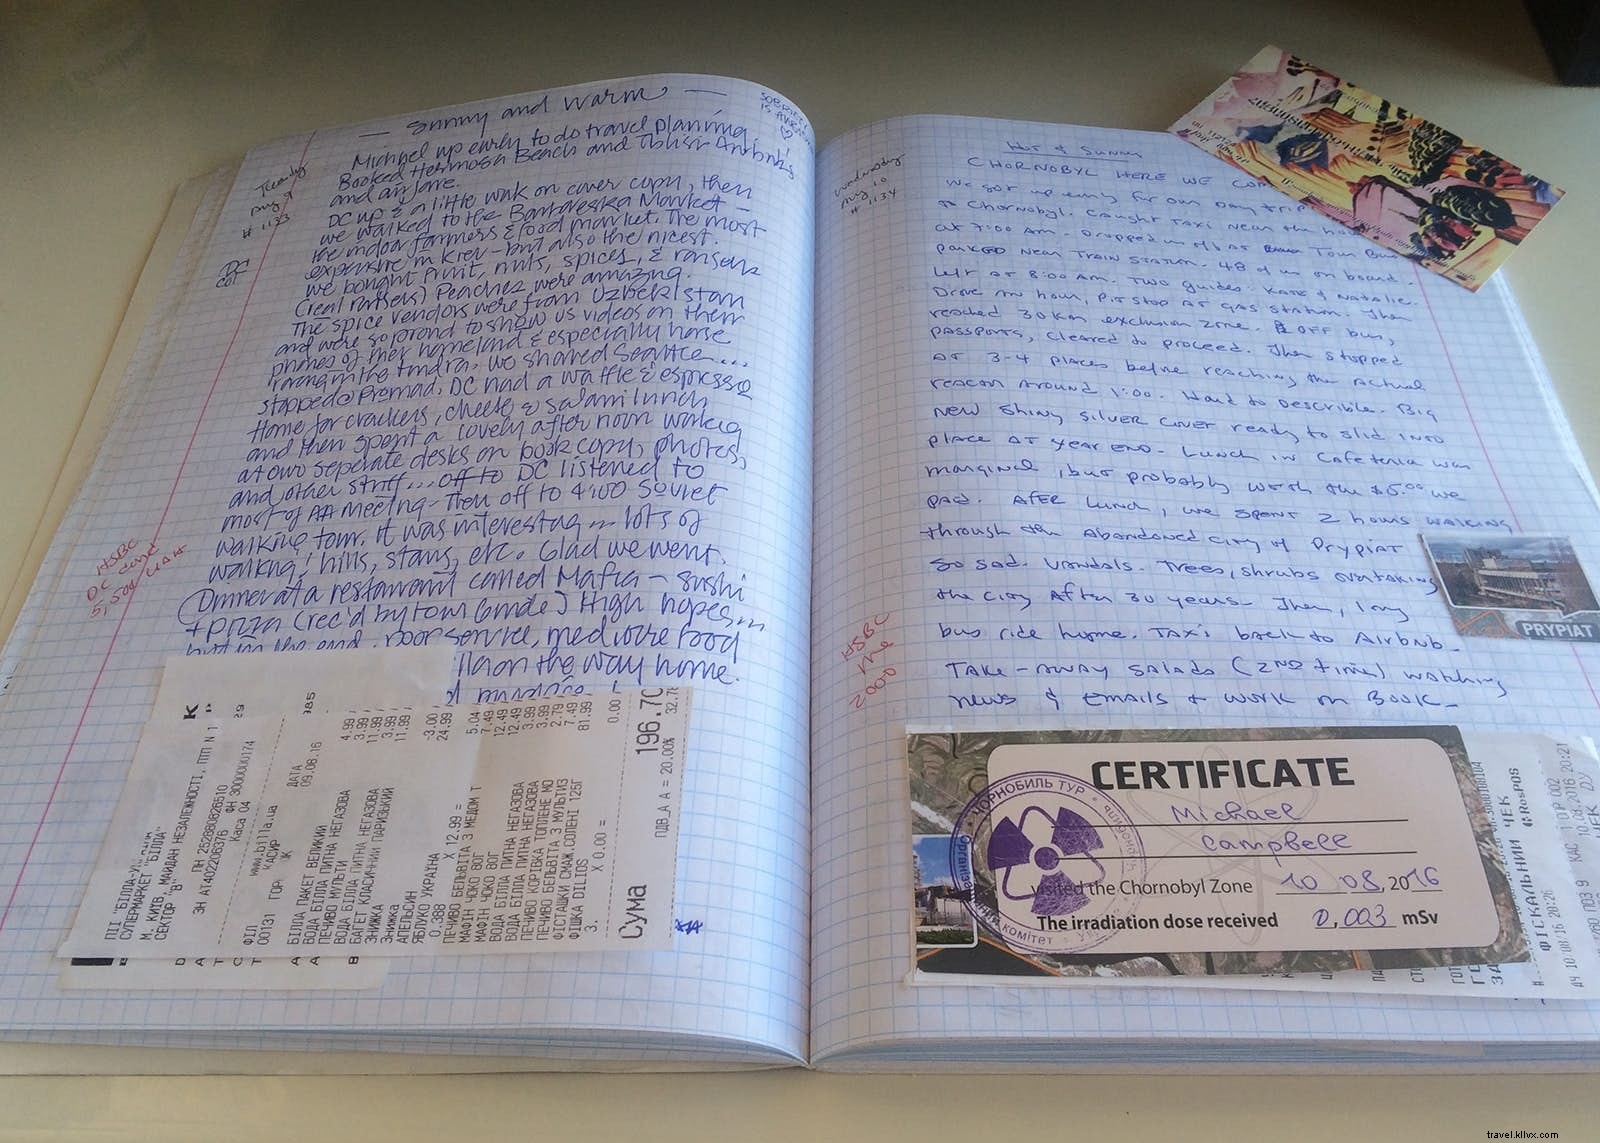 — Sunny and Warm —
SOBRIETY
IS
Tuesday
Aug 9
# 1133
Michael up early to do travel planing.
Booked Hermosa Beach and Tblisi Airbnb's
and airfare.
DC up & a little wak on cover copy, then
we walked to the Bartareska Market –
the indoor farmers & food market. The most
expensive in Kiev – but also the nicest.
we bought fruit, nuts, spices, & raisens
(real raisens) Peaches were amazing.
The spice vendors were from Uzbekistan
and were so proud to show us videos on their
phones of their homeland & especially horse
racing in the tundra, we shared Seattle...
stopped @ Premad, DC had a waffle & espresso
Home for crackers, cheese & salami lunch
and then spent a lovely after noon working
at two seperate desks on book copy, photos,
and other stuff... off to DC listened to
most of AA meeting – Then off to 4:00 Soviet
walking tour. It was interesting – lots of
walking, hills, stairs, etc. Glad we went.
Dinner at a restaurant called Mafia – sushi
+ pizza (rec'd by tour guide) High hopes...
but in the end, poor service, mediocre food
on the way home.
HSBC
DC card
5,500 UAH
ПІІ "БІЛЛА-
СУПЕРМАРКЕТ "БІЛЛА"
М. КИЇВ, МАЙДАН НЕЗАЛЕЖНОСТІ, ПТП N 1
СЕКТОР "В"
ПН 252898026510
ЗН АТ402206376 ФН 3000000174
ФІЛ Каса 04
00131
www.billa.ua
ДАТА
09.08.16
БІЛЛА ПАКЕТ ВЕЛИКИЙ 4.99
ВОДА БІЛЛА ПИТНА НЕГАЗОВА 3.99
ПЕЧИВО МУЛЬТИ 11.99
ВОДА БІЛЛА ПИТНА НЕГАЗОВА 3.99
БАГЕТ КЛАСИЧНИЙ ПАРИЗЬКИЙ 11.99
ЗНИЖКА
Знижка -3.00
АПЕЛЬСИН 24.99
ЯБЛУКО УКРАЇНА
0.388 X 12.99 = 5.04
ПЕЧИВО БЕЛЬВІТА З МЕДОМ Т 7.49
МАФІН ЧОКО ВОГ 12.49
МАФІН ЧОКО ВОГ 12.49
ВОДА БІЛЛА ПИТНА НЕГАЗОВА 3.99
ВОДА БІЛЛА ПИТНА НЕГАЗОВА 3.99
ПЕЧИВО КОРІВКА ТОПЛЕНЕ МО 2.79
ПЕЧИВО БЕЛЬВІТА З МУЛЬТИЗ 7.49
ФІСТАШКИ СМАЖ.СОЛЕНІ 125Г 81.99
ФІШКА DILIOS
3. X 0.00 = 0.00
Сума 196.70
ПДВ_А А = 20.00% 32.78
Wednesday
Aug 10
# 1134
Hot & Sunny
CHORNOBYL HERE WE
We got up early for our Day trip
to Chornobyl. Caught taxi near the
at 7:00 AM. Dropped us off at Tour Bus
parked near Train Station. 48 of us on board.
Left at 8:00 AM. Two guides. Kate & Natalie.
Drove an hour, pit stop at gas station. Then
reached 30 km exclusion zone. OFF bus,
passports, cleared to proceed. Then stopped
at 3-4 places before reaching the actual
reacon around 1:00. Hard to describle. Big
new shiny silver cover ready to slid into
place at year end. Lunch in Cafeteria was
marginal, but probably worth the $5.00 we
paid. After lunch, we spent 2 hours walking
through the abandoned city of Prypiat
So sad. Vandals. Trees, shrubs overtaking
the city after 30 years. Then, long
bus ride home. Taxi back to Airbnb.
Take-away salads (2nd time) watching
news & emails & work on Book.
HSBC
me
2000
PRYPIAT
CERTIFICATE
Michael
Campbell
visited the Chornobyl Zone 10 08, 2016
The irradiation dose received 0,003 mSv
ЧОРНОБИЛЬ ТУР
ФІСКАЛЬНИЙ ЧЕК
travel.kllvx.com